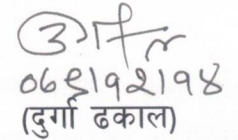 ०६९।१२।१४
(दुर्गा ढकाल)